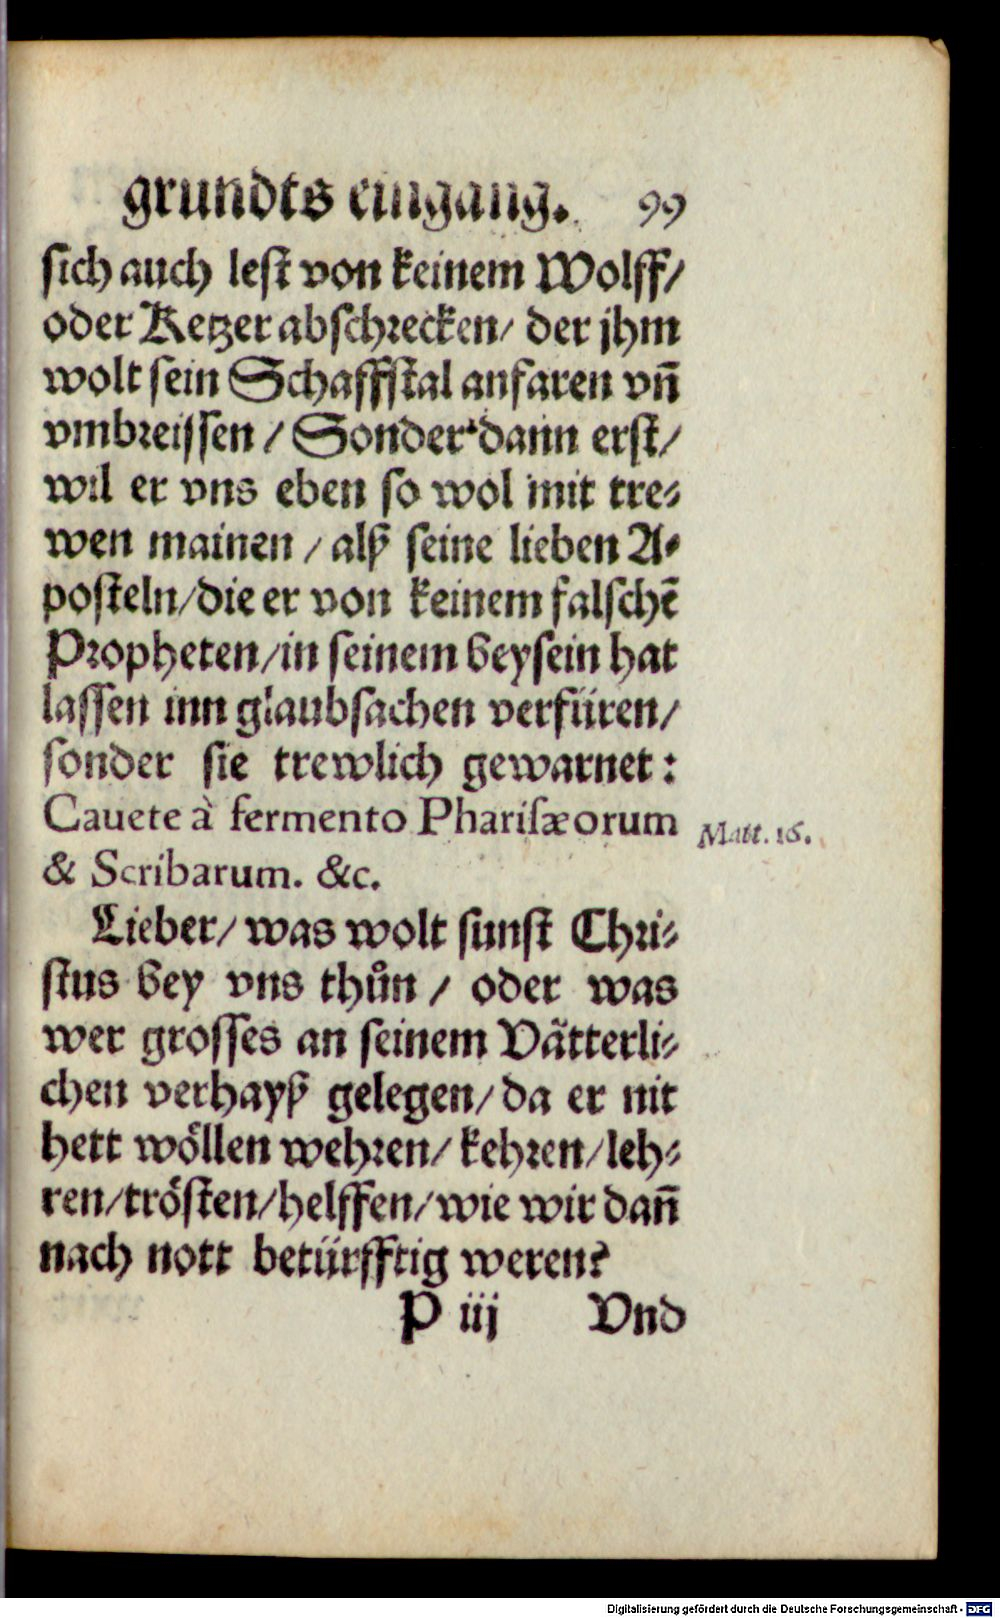 grundts eingang. 99
sich auch lest von keinem Wolff/
oder Ketzer abschrecken/ der jhm
wolt sein Schaffstal anfaren vñ
vmbreissen / Sonder dann erst/
wil er vns eben so wol mit tre-
wen mainen / alß seine lieben A-
posteln/die er von keinem falschē
Propheten/in seinem beysein hat
lassen inn glaubsachen verfüren/
sonder sie trewlich gewarnet:
Cauete à fermento Phariſæorum
& Scribarum. &c.
Matt. 16.
Lieber/ was wolt sunst Chri-
stus bey vns thůn / oder was
wer grosses an seinem Vätterli-
chen verhayß gelegen/da er nit
hett wöllen wehren/ kehren/leh-
ren/trösten/helffen/wie wir dañ
nach nott betürfftig weren?
P iij Vnd
Digitalisierung gefördert durch die Deutsche Forschungsgemeinschaft - DFG